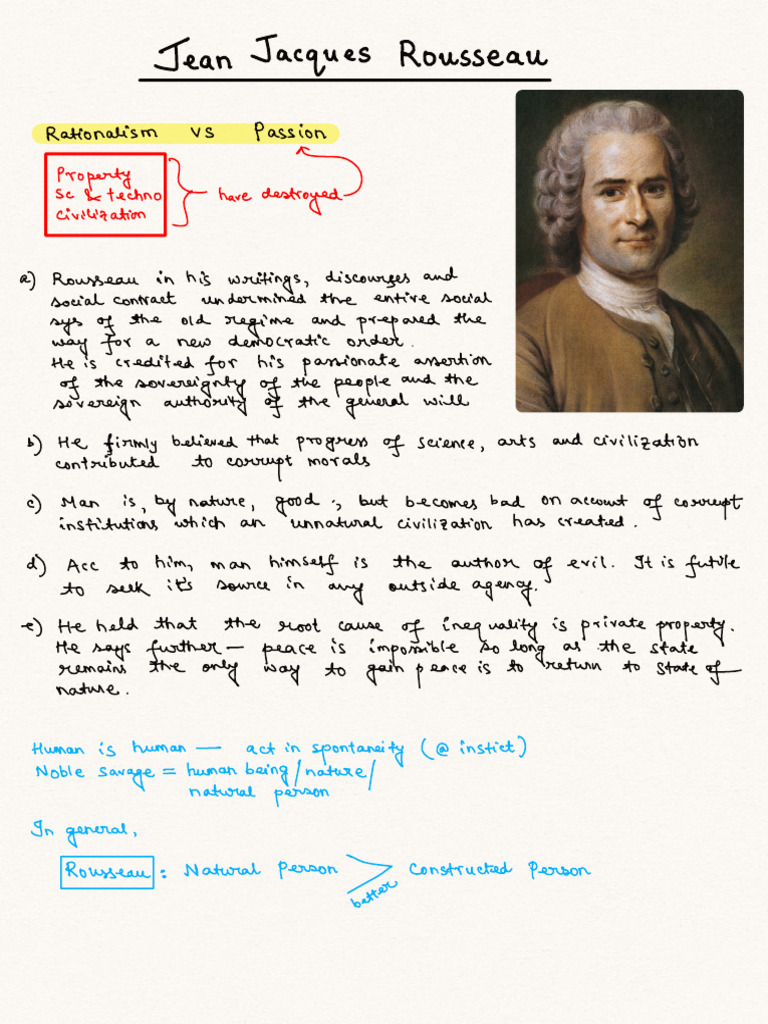 Jean Jacques Rousseau
Rationalism vs Passion
Property
Sc & techno
civilization
have destroyed
a) Rousseau in his writings, discourses and
social contract undermined the entire social
sys of the old regime and prepared the
way for a new democratic order.
He is credited for his passionate assertion
of the sovereignty of the people and the
sovereign authority of the general will
b) He firmly believed that progress of science, arts and civilization
contributed to corrupt morals
c) Man is, by nature, good ·, but becomes bad on account of corrupt
institutions which an unnatural civilization has created.
d) Acc to him, man himself is the author of evil. It is futile
to seek it's source in any outside agency.
e) He held that the root cause of inequality is private property.
He says further — peace is impossible so long as the state
remains the only way to gain peace is to return to state of
nature.
Human is human — act in spontaneity (@ instict)
Noble savage = human being/nature/
natural person
In general,
Rousseau : Natural Person > Constructed Person
better